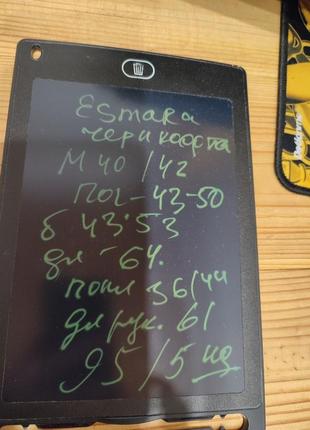 Esmara
черн кофта
M 40 / 42
пог - 43 - 50
б 43·53
дл - 64.
36/44
дл рук. 61
95/5